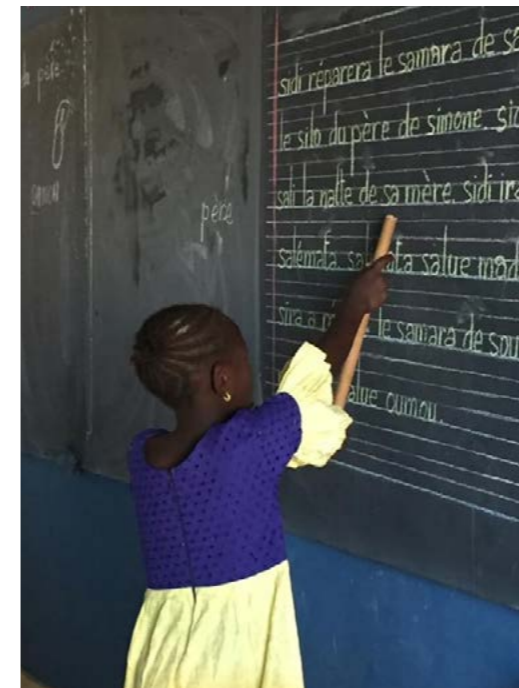 père
père
sidi réparera le samara de sa
le silo du père de simone. si
sali la natte de sa mère. sidi ira
salémata. salue mad
sira a le samara de sou
alue oumou.